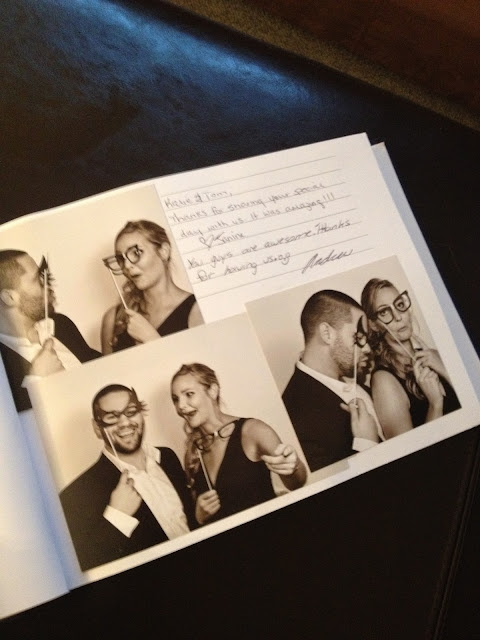 Katie & Tom,
Thanks for sharing your special
day with us it was amazing!!!
You guys are awesome. Thanks
for having us
Andrew